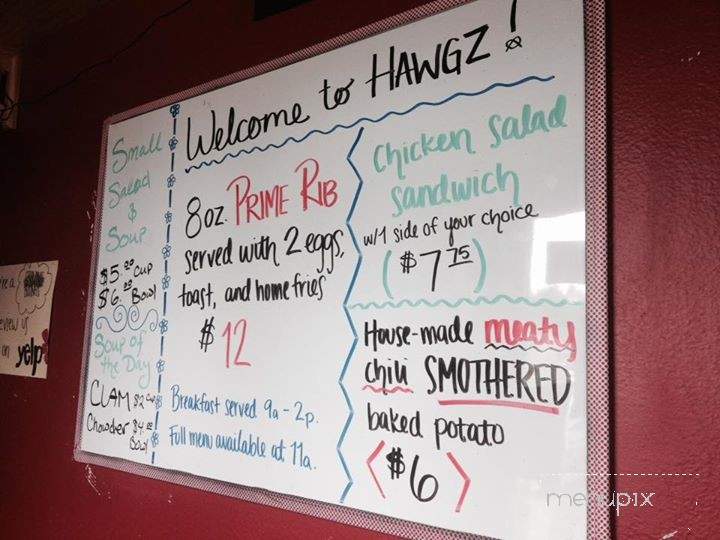 Welcome to HAWGZ!
Small
Salad
&
Soup
$5.20 Cup
Bowl
Soup of
the Day
CLAM $2 Cup
Chowder $4.00
Bowl
8oz. PRIME RIB
served with 2 eggs,
toast, and home fries
$12
Breakfast served 9a - 2p.
Full menu available at 11a.
Chicken Salad
Sandwich
w/1 side of your choice
($7.75)
House-made meaty
chili SMOTHERED
baked potato
<$6>
on yelp
menupix